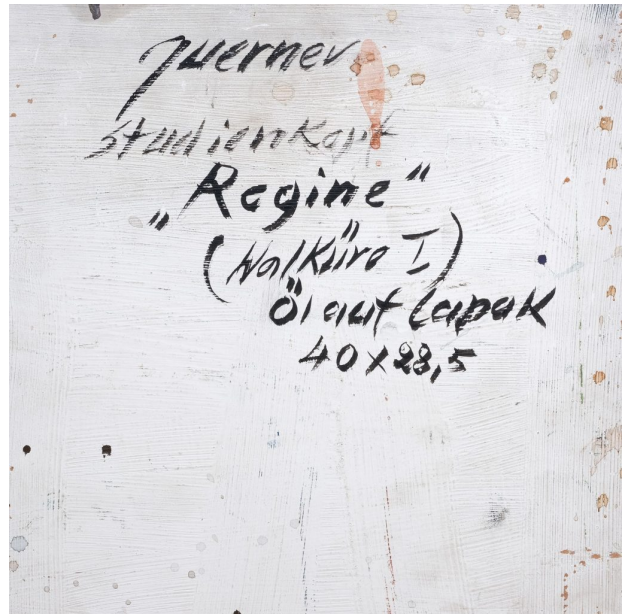 Querner
Studienkopf
"Regine"
(Walküre I)
Öl auf Lapak
40x28,5